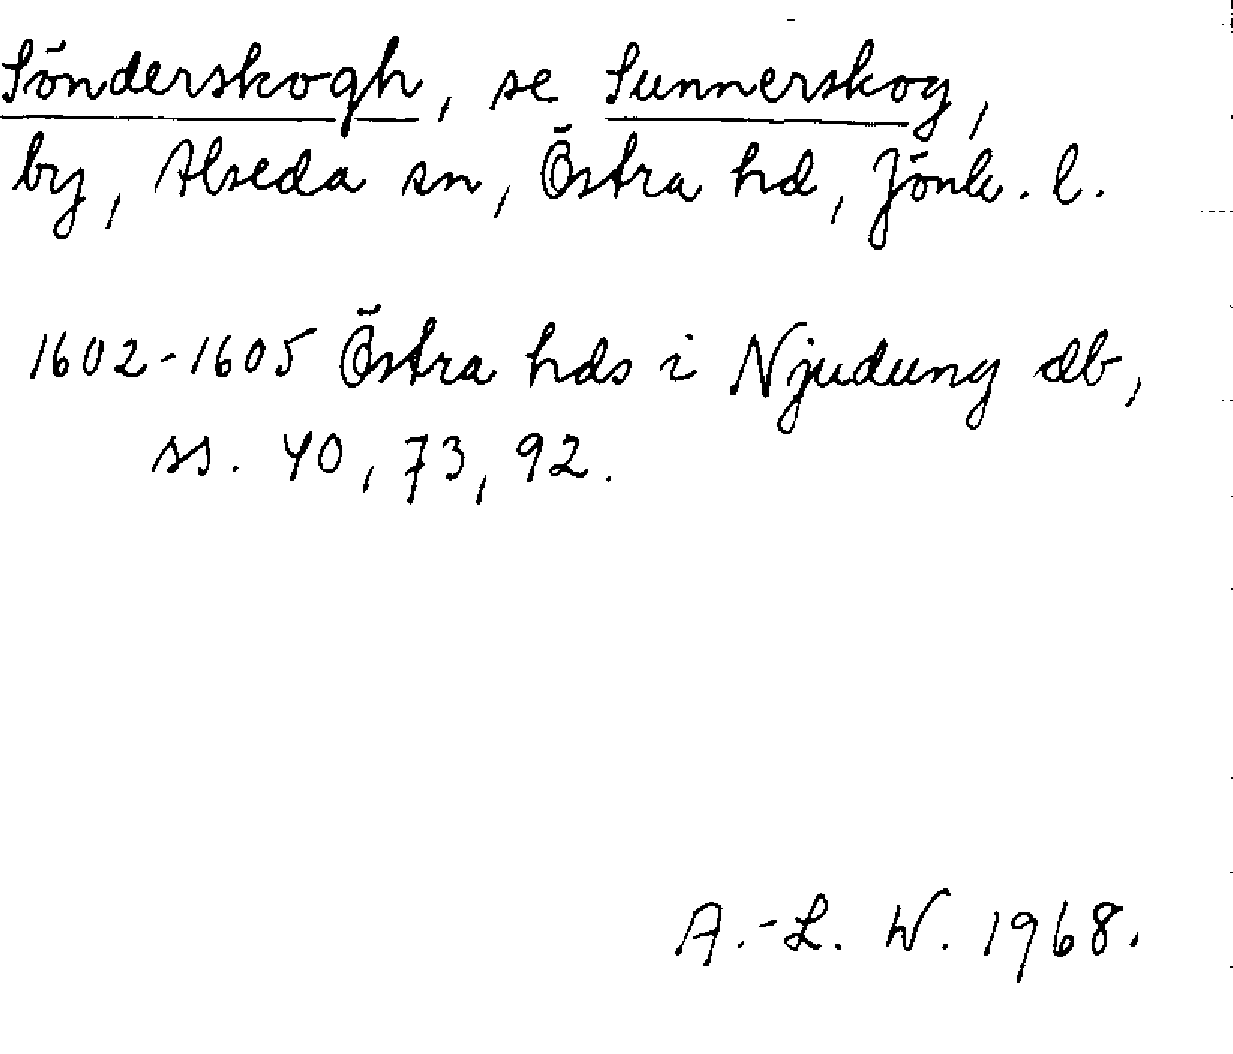 Sönderskogh, se Sunnerskog,
by, Alseda sn, Östra hd, Jönk. l.
1602-1605 Östra hds i Njudung db,
ss. 40, 73, 92.
A.-L. W. 1968.